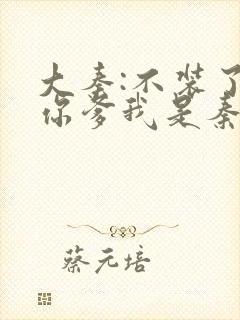 大秦:不装了
你爹我是秦
蔡元培